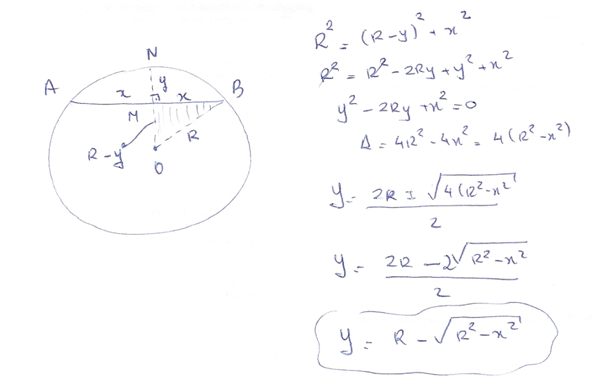 N
A
y
B
x x
M
R
R-y
O
R² = (R-y)² + x²
R² = R² - 2Ry + y² + x²
y² - 2Ry + x² = 0
Δ = 4R² - 4x² = 4(R² - x²)
y = 2R ± √4(R²-x²
2
y = 2R - 2√R²-x²
2
y = R - √R²-x²